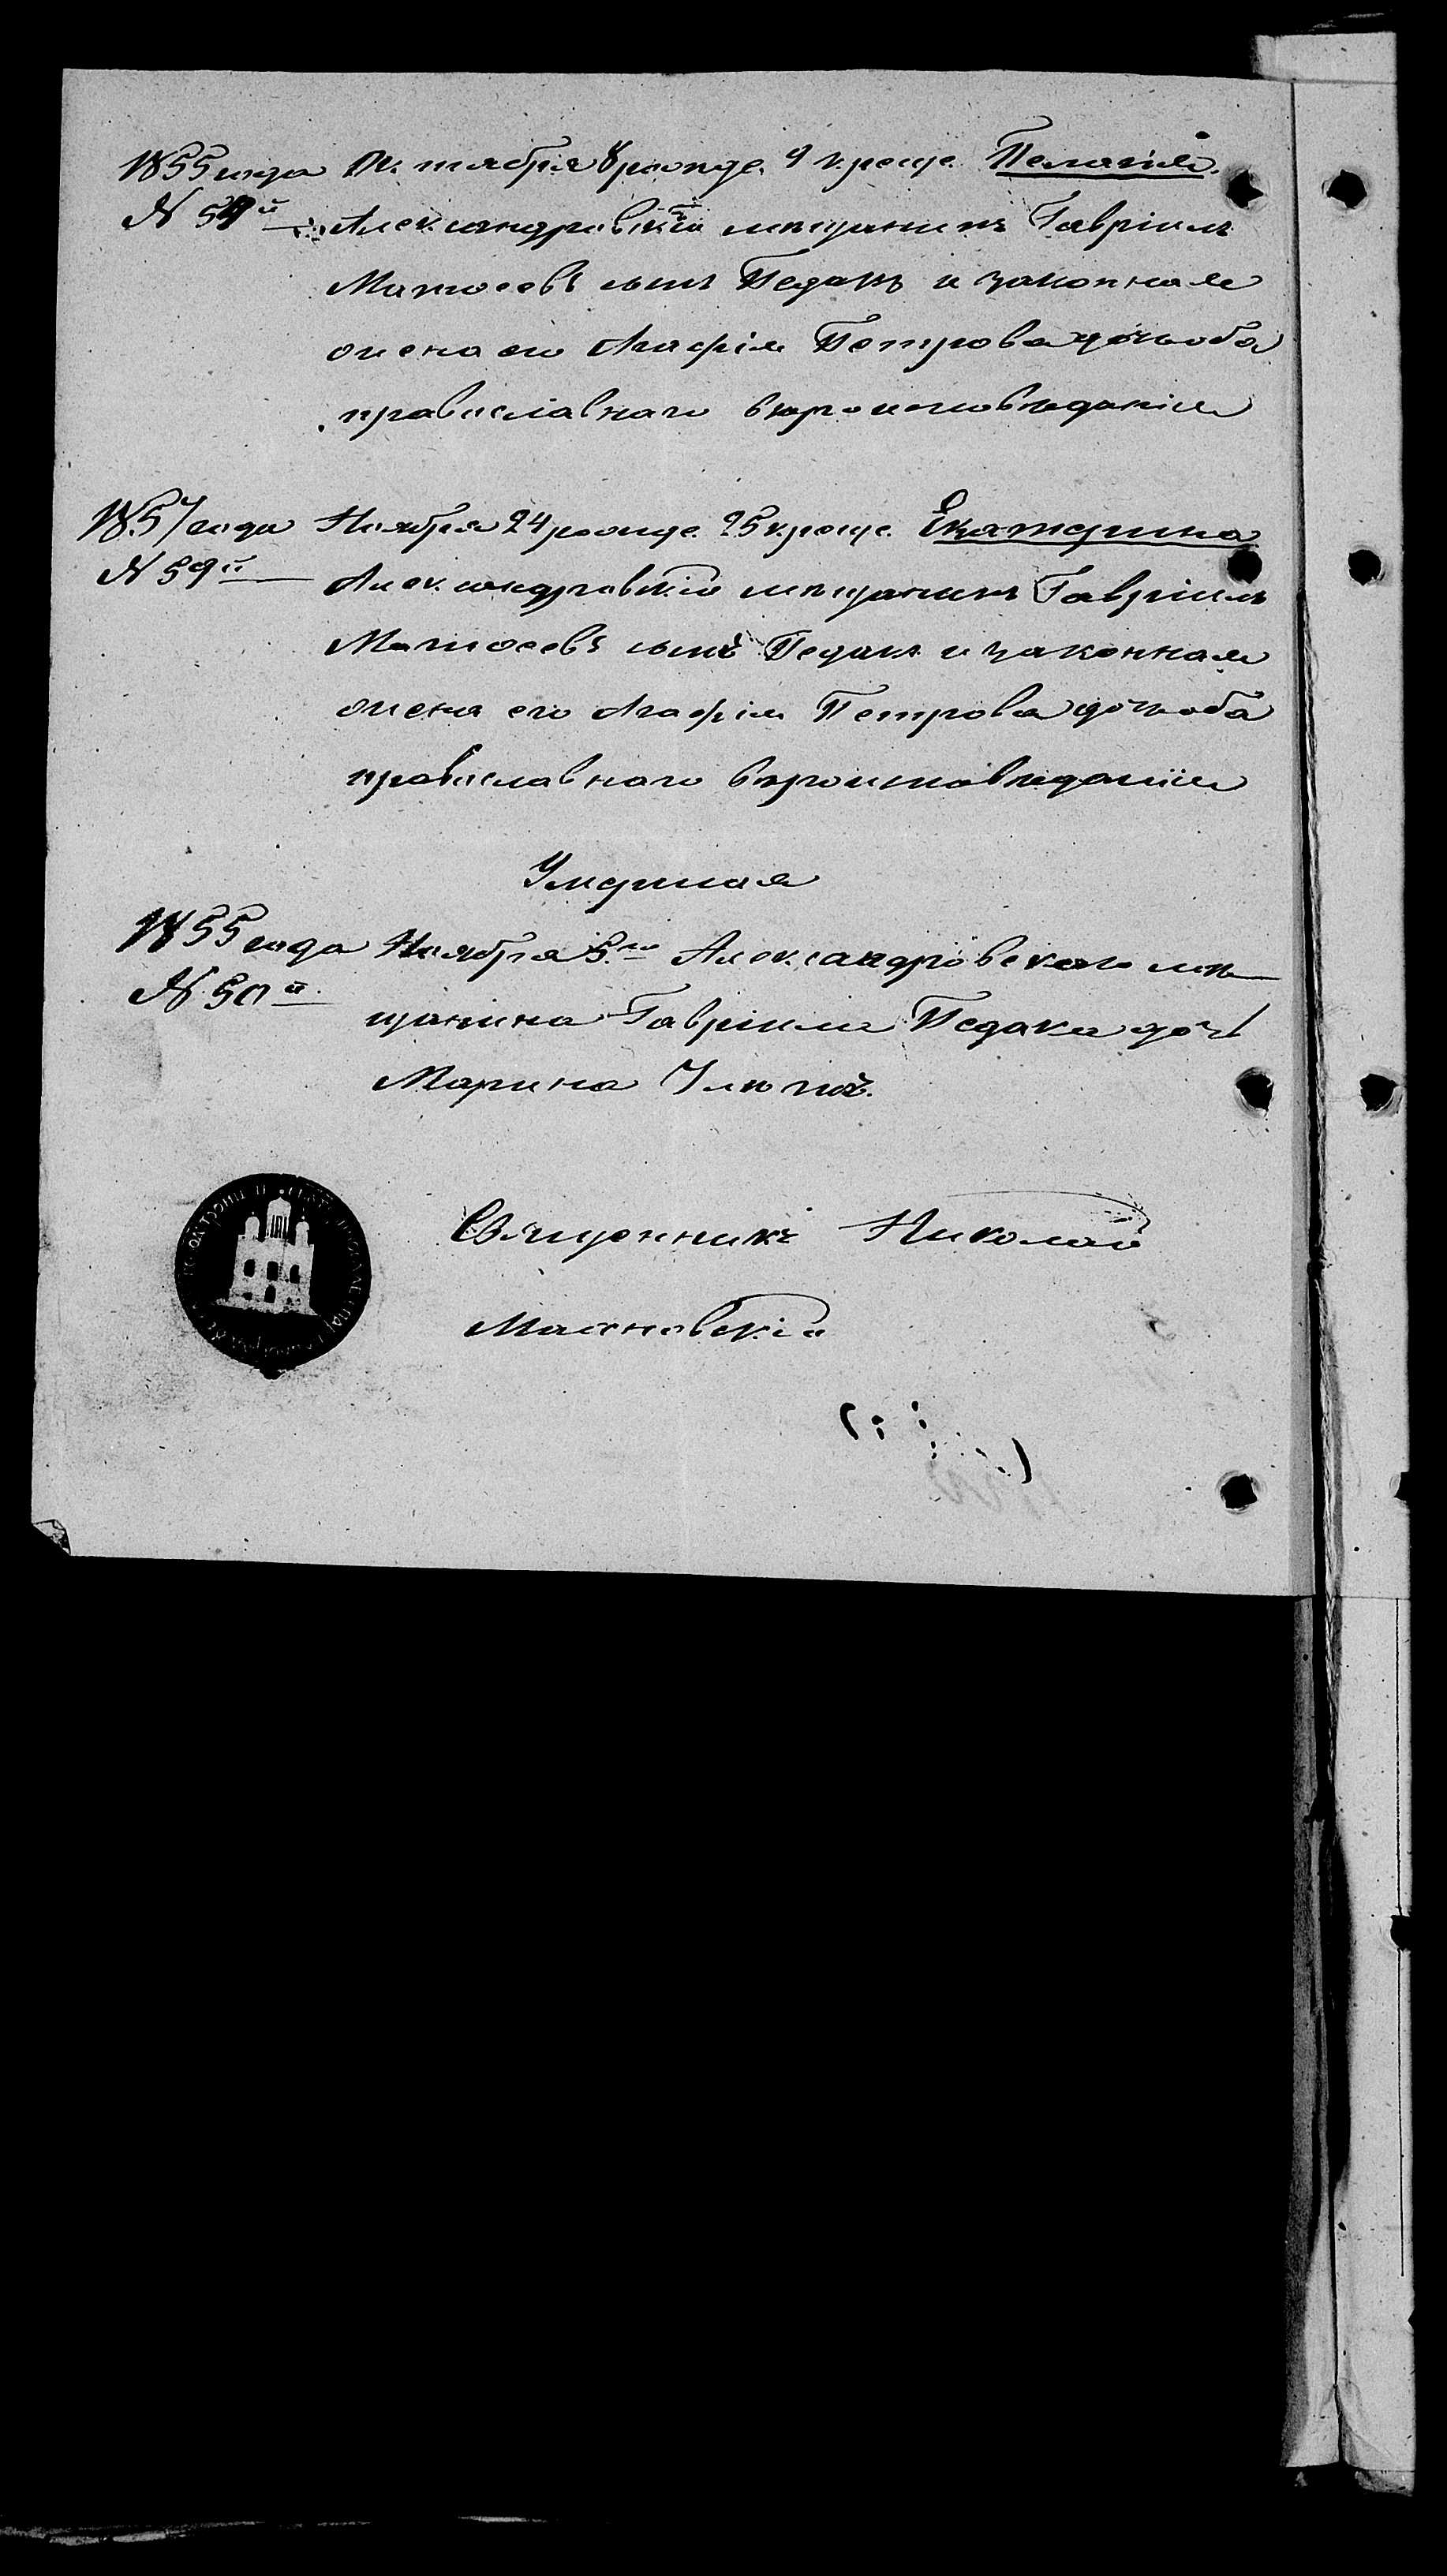 1855 года Октября 8 рожде. 9 креще. Пелагія.
№ 54й Александровскій мѣщанинъ Гавріилъ
Матѳеевъ сынъ Педакъ и законная
жена его Агафія Петрова дочь оба
православнаго вѣроисповѣданія
1857 года Ноября 24 рожде. 25 креще. Екатерина
№ 59й Александровскій мѣщанинъ Гавріилъ
Матѳеевъ сынъ Педакъ и законная
жена его Агафія Петрова дочь оба
православнаго вѣроисповѣданія
Умершая
1855 года Ноября 5го Александровскаго мѣ
№ 50й щанина Гавріила Педака дочь
Марина 7 лѣтъ.
Священникъ Николай